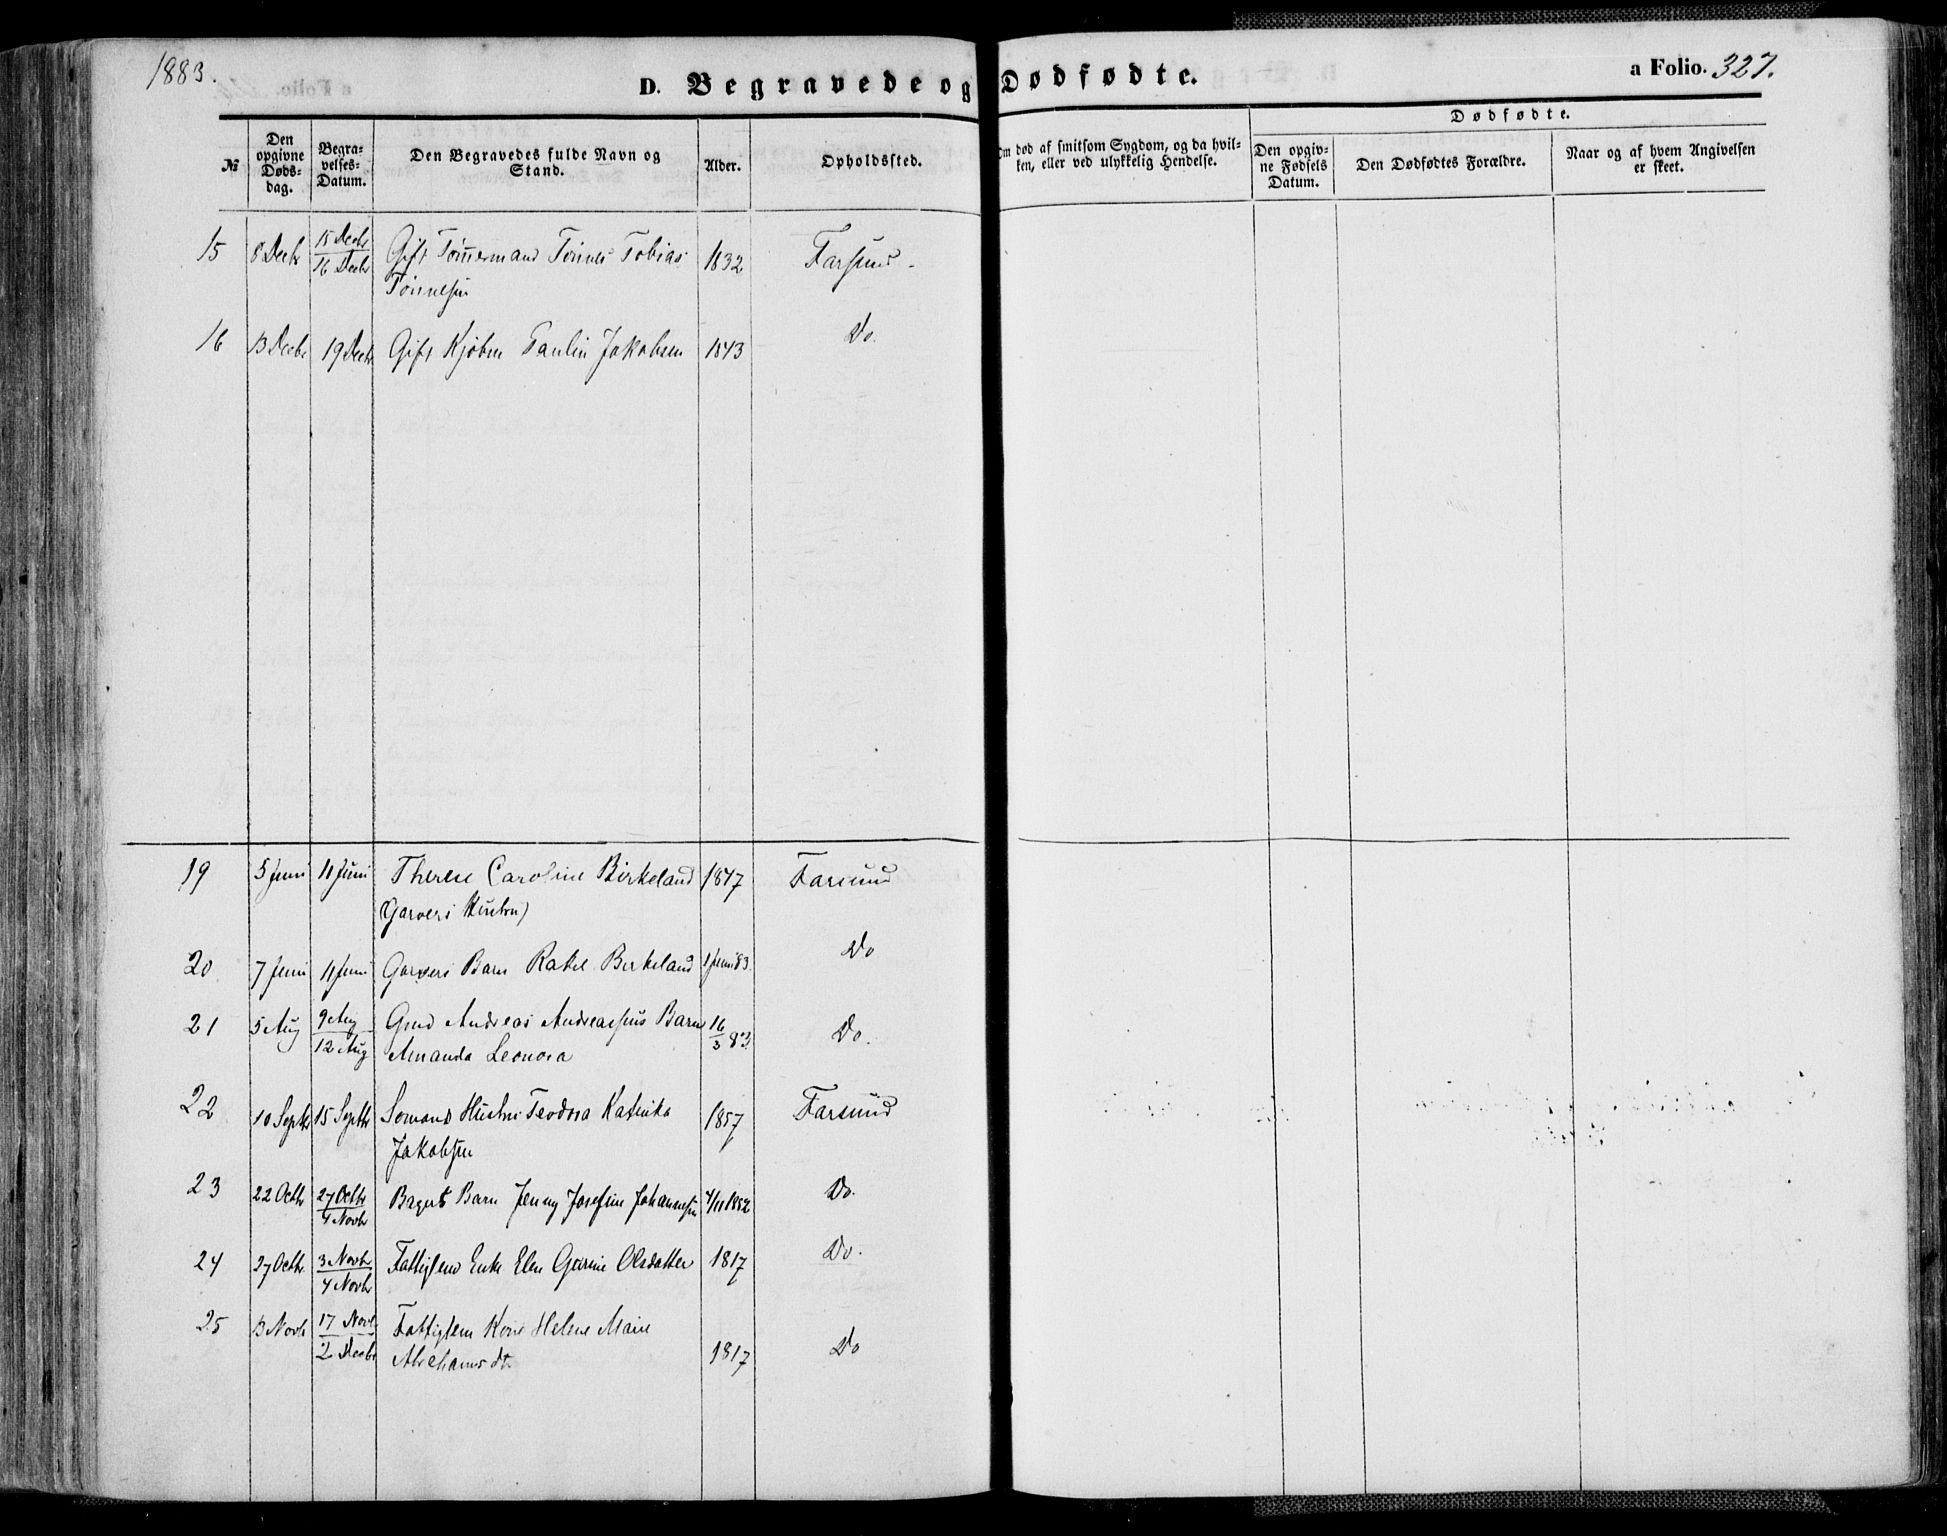 1883.
D. Begravede og Dødfødte.
a Folio. 327.
№
Den opgivne Døds-dag.
Begra-velses-Datum.
Den Begravedes fulde Navn og Stand.
Alder.
Opholdssted.
Om død af smitsom Sygdom, og da hvil-ken, eller ved ulykkelig Hendelse.
Dødfødte.
Den opgiv-ne Fødsels Datum.
Den Dødfødtes Forældre.
Naar og af hvem Angivelsen er skeet.
15 8 Decbr 15 Decbr 16 Decbr Gift Tømmermand Tønnes Tobias 1832 Farsund.
Tønnesen
16 13 Decbr 19 Decbr Gift Jakobsen 1843 Do.
19 5 Juni 11 Juni Therese Caroline Birkeland 1847 Farsund
(Garvers Hustru)
20 7 Juni 11 Juni Garvers Barn Rakel Birkeland 1 Juni 83. Do
21 5 Aug 9 Aug 12 Aug Andreas Andreassens Barn 16/3 83. Do.
Amanda Leonora
22 10 Septbr 15 Septbr Sømands Hustru Teodora Katinka 1857 Farsund
Jakobsen
23 22 Octbr 27 Octbr 4 Novbr Bagers Barn Jenny Josefine Johannesen 4/11 1882 Do.
24 27 Octbr. 3 Novbr 4 Novbr Fattiglem Enke Elen Olsdatter 1817 Do.
25 13 Novbr 17 Novbr 2 Decbr Fattiglem Kone Helene Marie
Abrahamsdt. 1817 Do